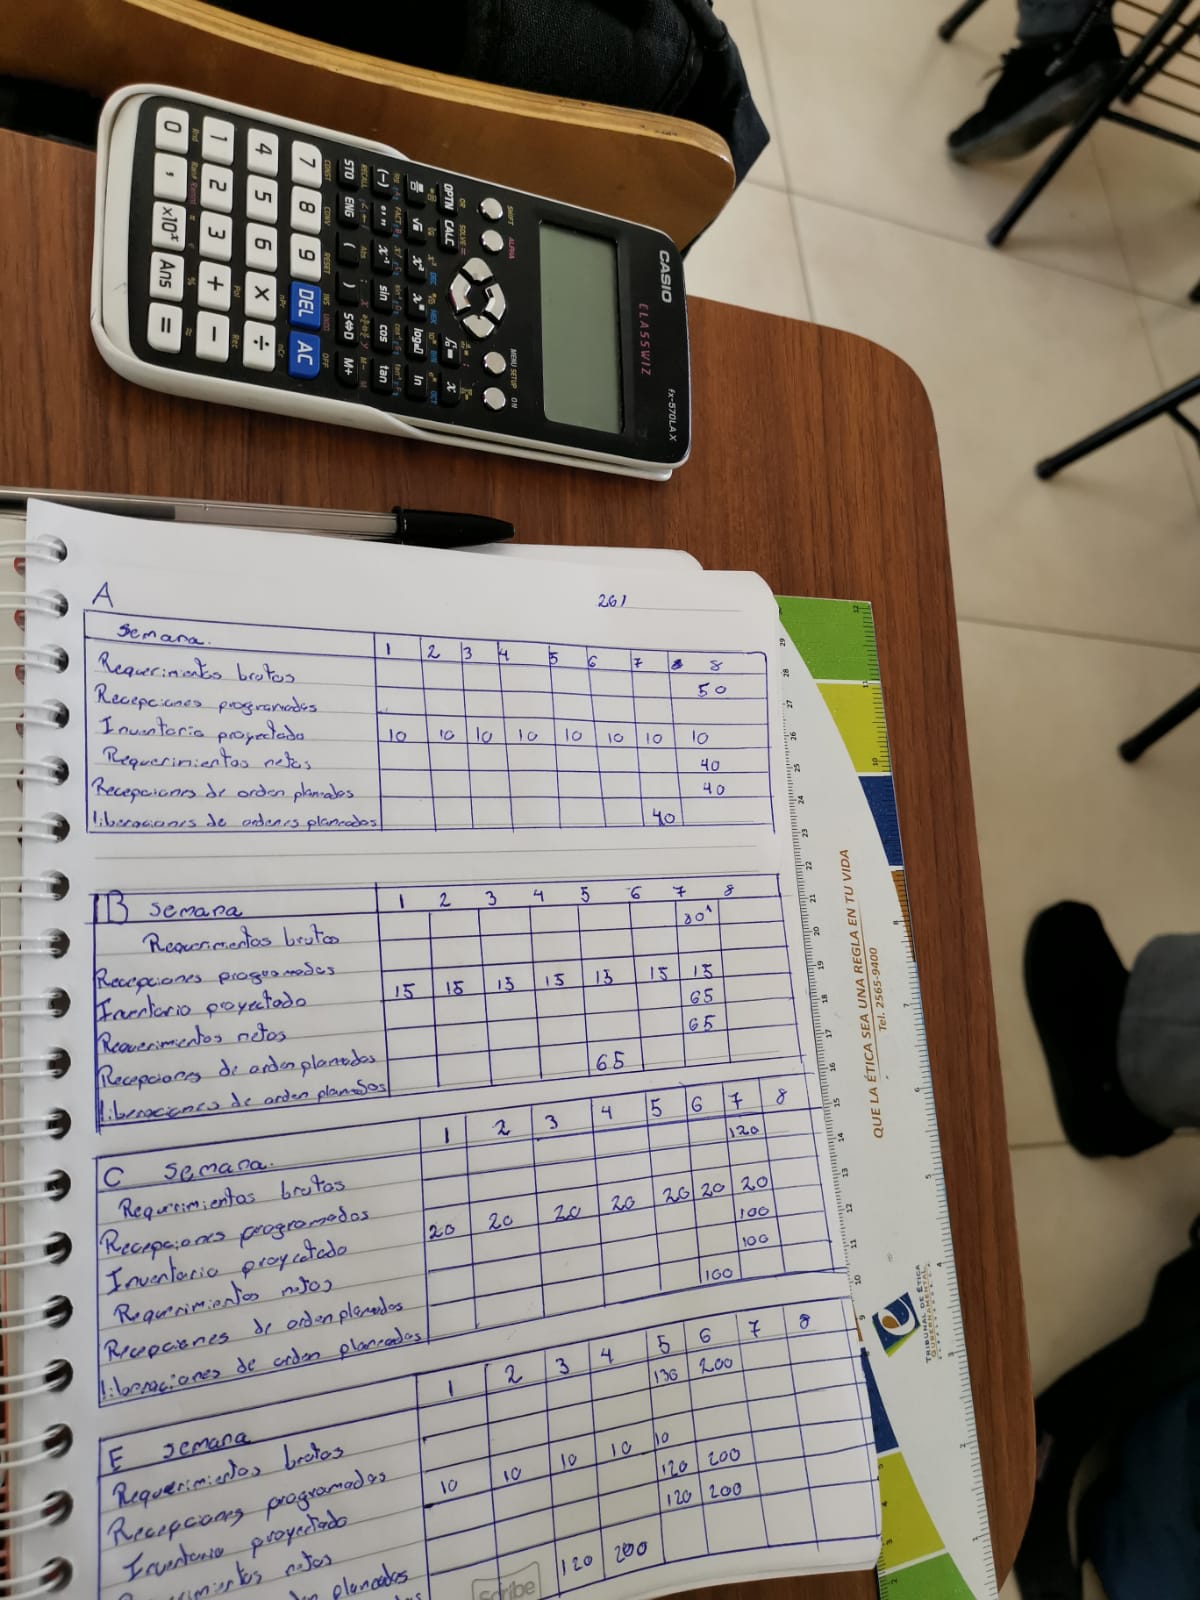 CASIO
CLASSWIZ
fx-570LA X
SHIFT ALPHA MENU SETUP ON
OPTN CALC
SOLVE =
log■□ ln
(-) sin cos tan
STO ENG ( ) S⇔D M+
RECALL
CONST CONV RESET INS UNDO OFF
7 8 9 DEL AC
4 5 6 × ÷
1 2 3 + -
0 , ×10ˣ Ans =
A 261
Semana. 1 2 3 4 5 6 7 8
Requerimientos brutos 50
Recepciones programadas
Inventario proyectado 10 10 10 10 10 10 10 10
Requerimientos netos 40
Recepciones de orden planeadas 40
liberaciones de ordenes planeadas 40
B Semana 1 2 3 4 5 6 7 8
Requerimentos brutos 80
Recepciones programadas
Inventario proyectado 15 15 15 15 15 15 15
Requerimientos netos 65
Recepciones de orden planeadas 65
liberaciones de orden planeadas 65
C Semana. 1 2 3 4 5 6 7 8
Requerimientos brutos 120
Recepciones programados
Inventario proyectado 20 20 20 20 20 20 20
Requerimientos netos 100
Recepciones de orden planeadas 100
liberaciones de orden planeadas 100
E Semana 1 2 3 4 5 6 7 8
Requerimientos brutos 130 200
Recepciones programadas
Inventario proyectado 10 10 10 10 10
netos 120 200
planeadas 120 200
120 200
Scribe
QUE LA ÉTICA SEA UNA REGLA EN TU VIDA
Tel. 2565-9400
TRIBUNAL DE ÉTICA
GUBERNAMENTAL